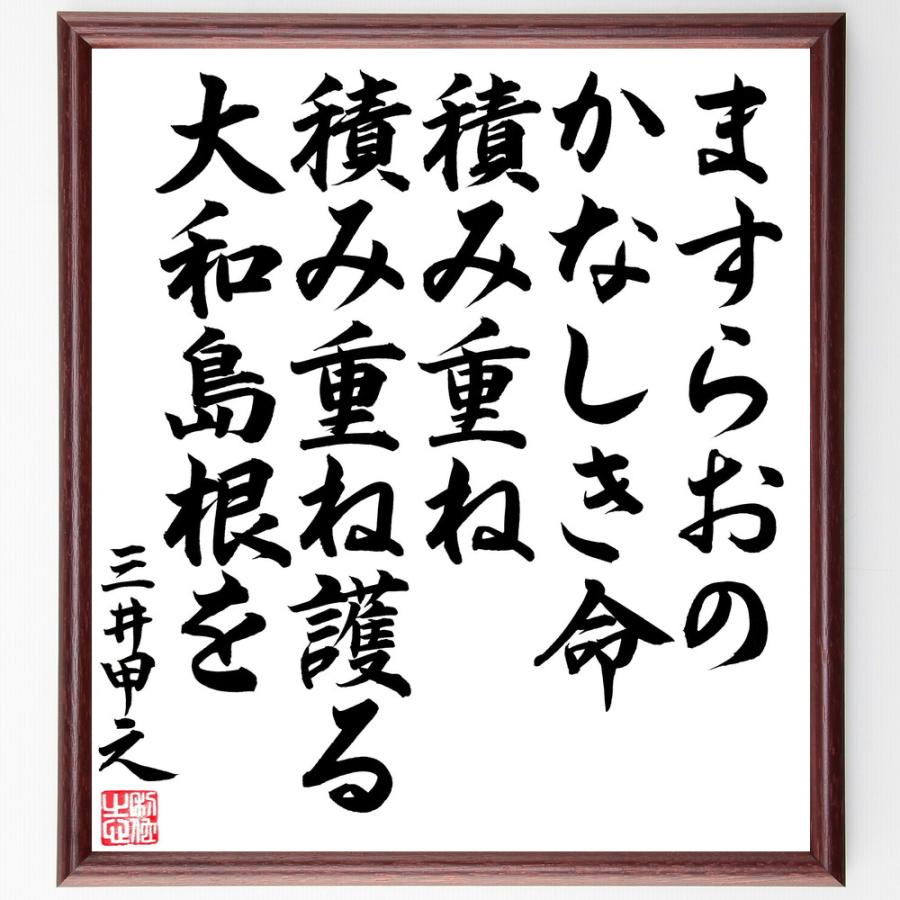 ますらおの
かなしき命
積み重ね
積み重ね護る
大和島根を
三井甲之